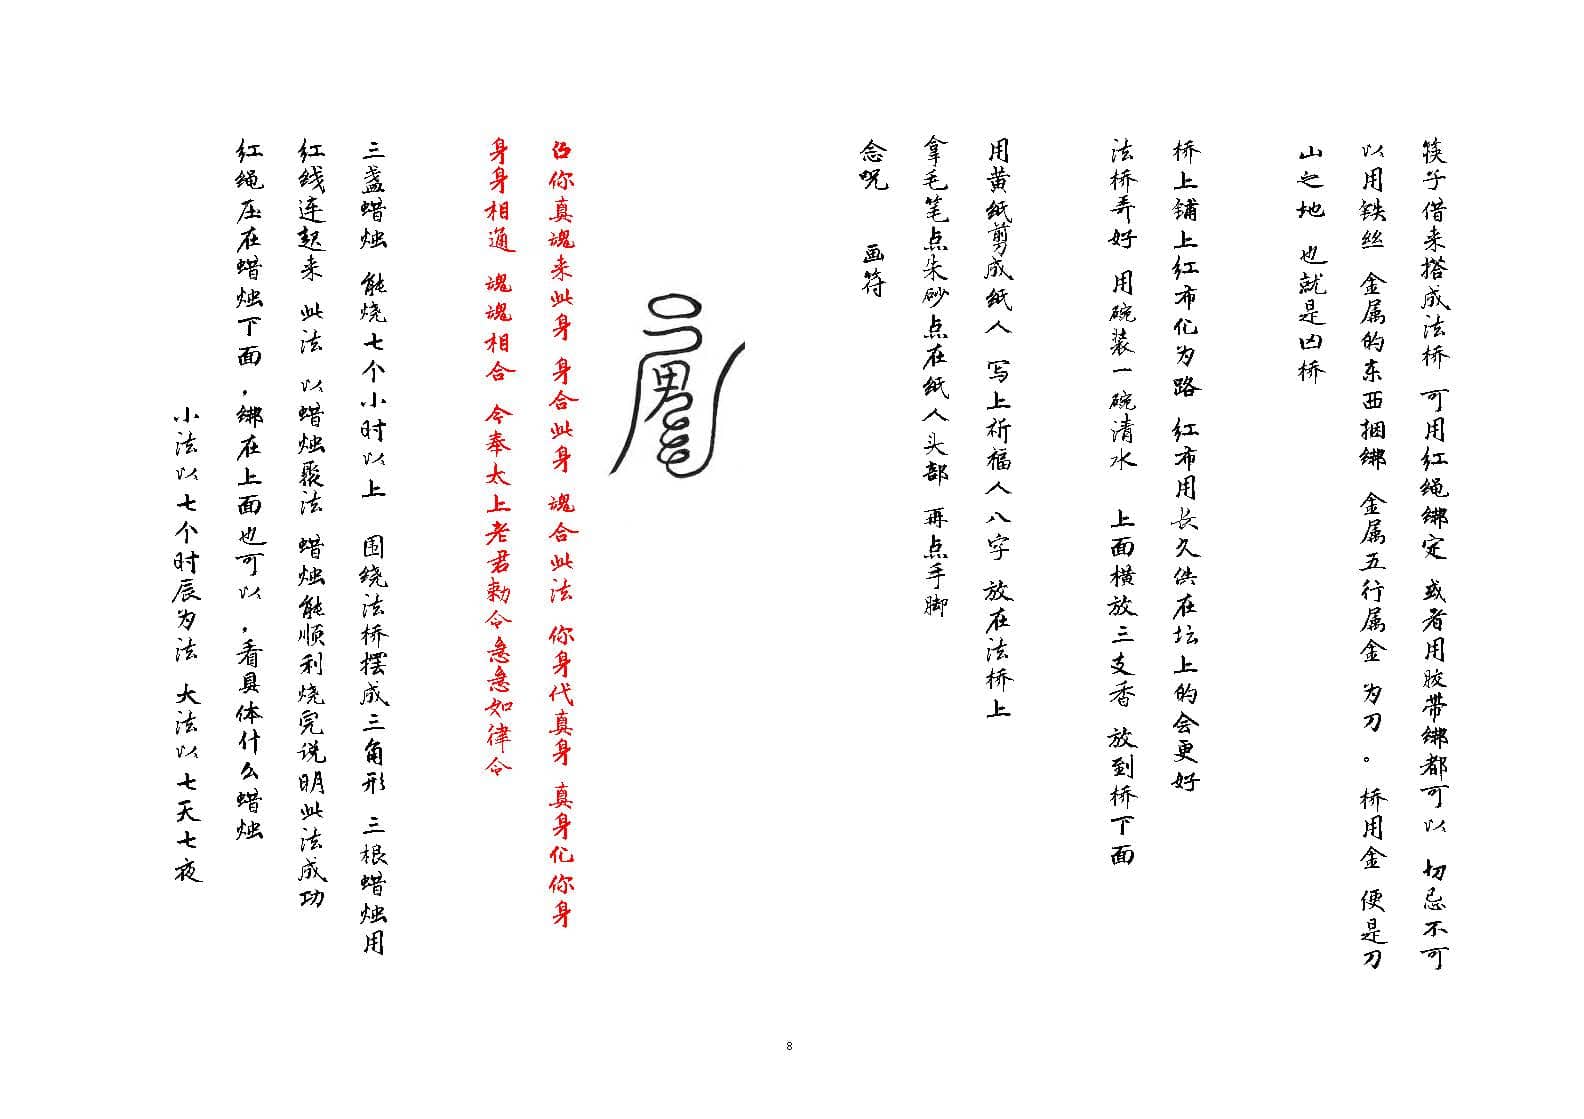 筷子借来搭成法桥 可用红绳绑定 或者用胶带绑都可以 切忌不可
以用铁丝 金属的东西捆绑 金属五行属金 为刀。桥用金 便是刀
山之地 也就是凶桥
桥上铺上红布化为路 红布用长久供在坛上的会更好
法桥弄好 用碗装一碗清水 上面横放三支香 放到桥下面
用黄纸剪成纸人 写上祈福人八字 放在法桥上
拿毛笔点朱砂点在纸人头部 再点手脚
念咒 画符
召你真魂来此身 身合此身 魂合此法 你身代真身 真身化你身
身身相通 魂魂相合 今奉太上老君敕令急急如律令
三盏蜡烛 能烧七个小时以上 围绕法桥摆成三角形 三根蜡烛用
红线连起来 此法 以蜡烛聚法 蜡烛能顺利烧完说明此法成功
红绳压在蜡烛下面,绑在上面也可以,看具体什么蜡烛
小法以七个时辰为法 大法以七天七夜
8